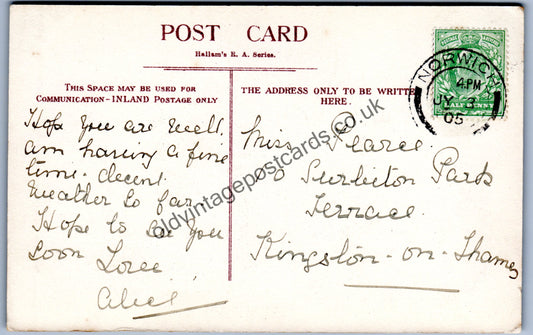 POST CARD
Hallam's R. A. Series.
THIS SPACE MAY BE USED FOR
COMMUNICATION-INLAND POSTAGE ONLY
THE ADDRESS ONLY TO BE WRITTEN
HERE.
Hope you are well
am having a fine
time. decent
weather so far.
Hope to see you
soon Love
Miss Pearce
Surbiton Park
Terrace
Kingston-on-Thames
NORWICH
4.PM
JY
05
HALF PENNY
oldvintagepostcards.co.uk